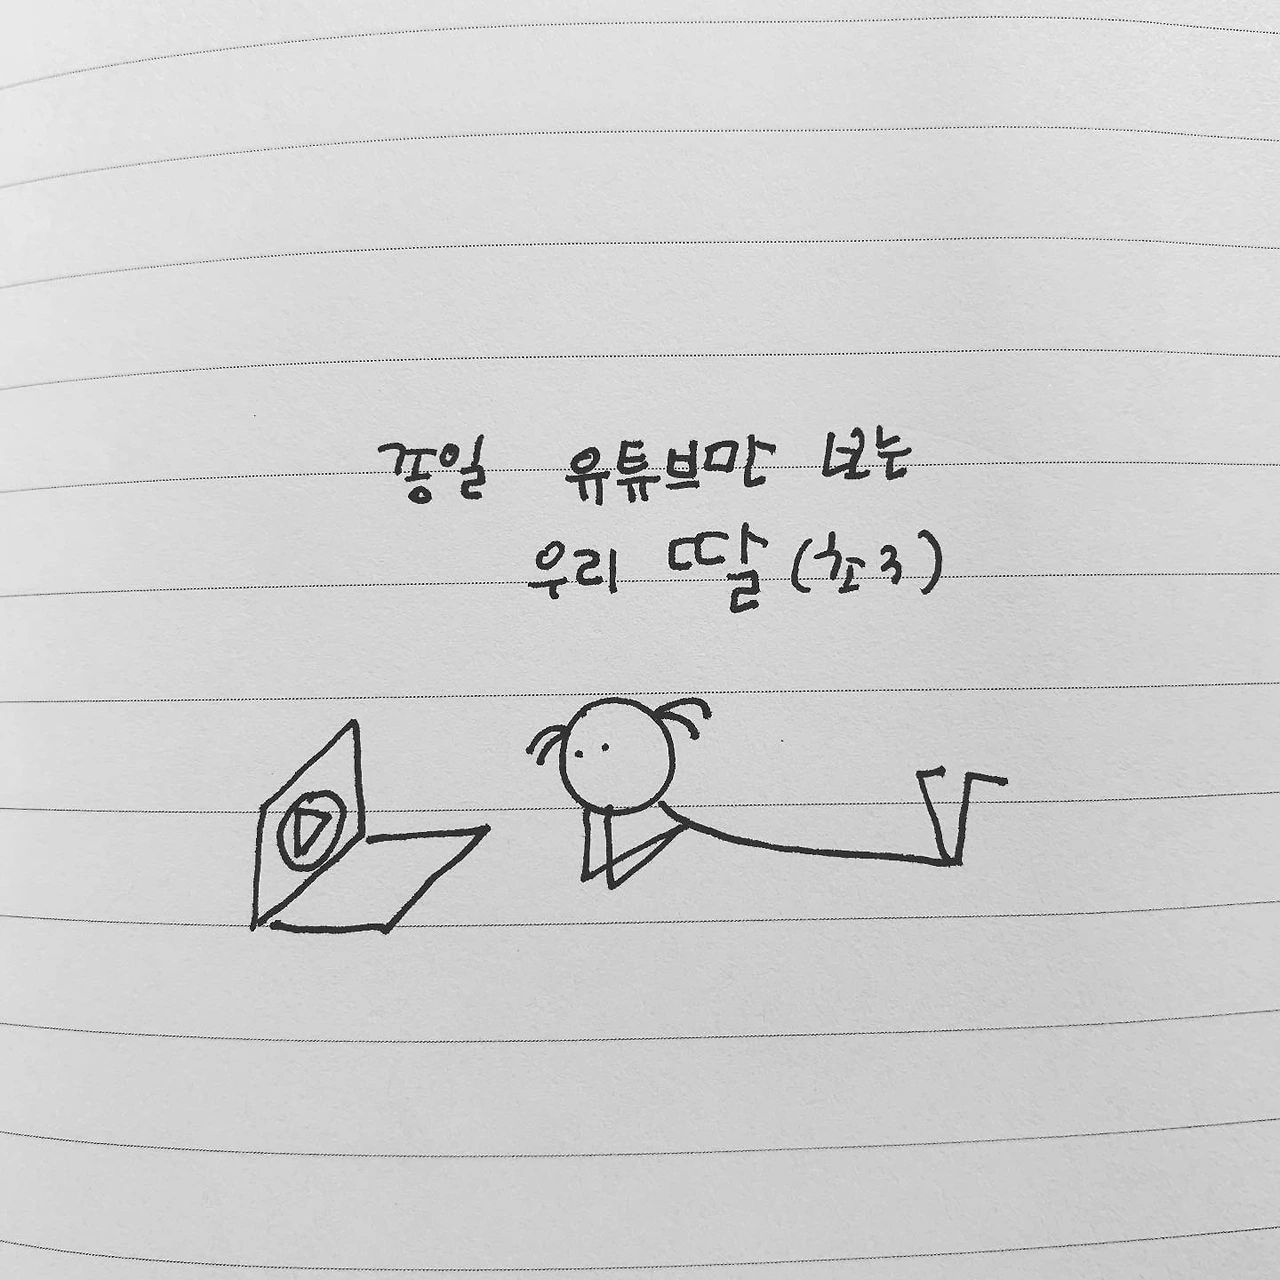 종일 유튜브만 보는
우리 딸 (초3)